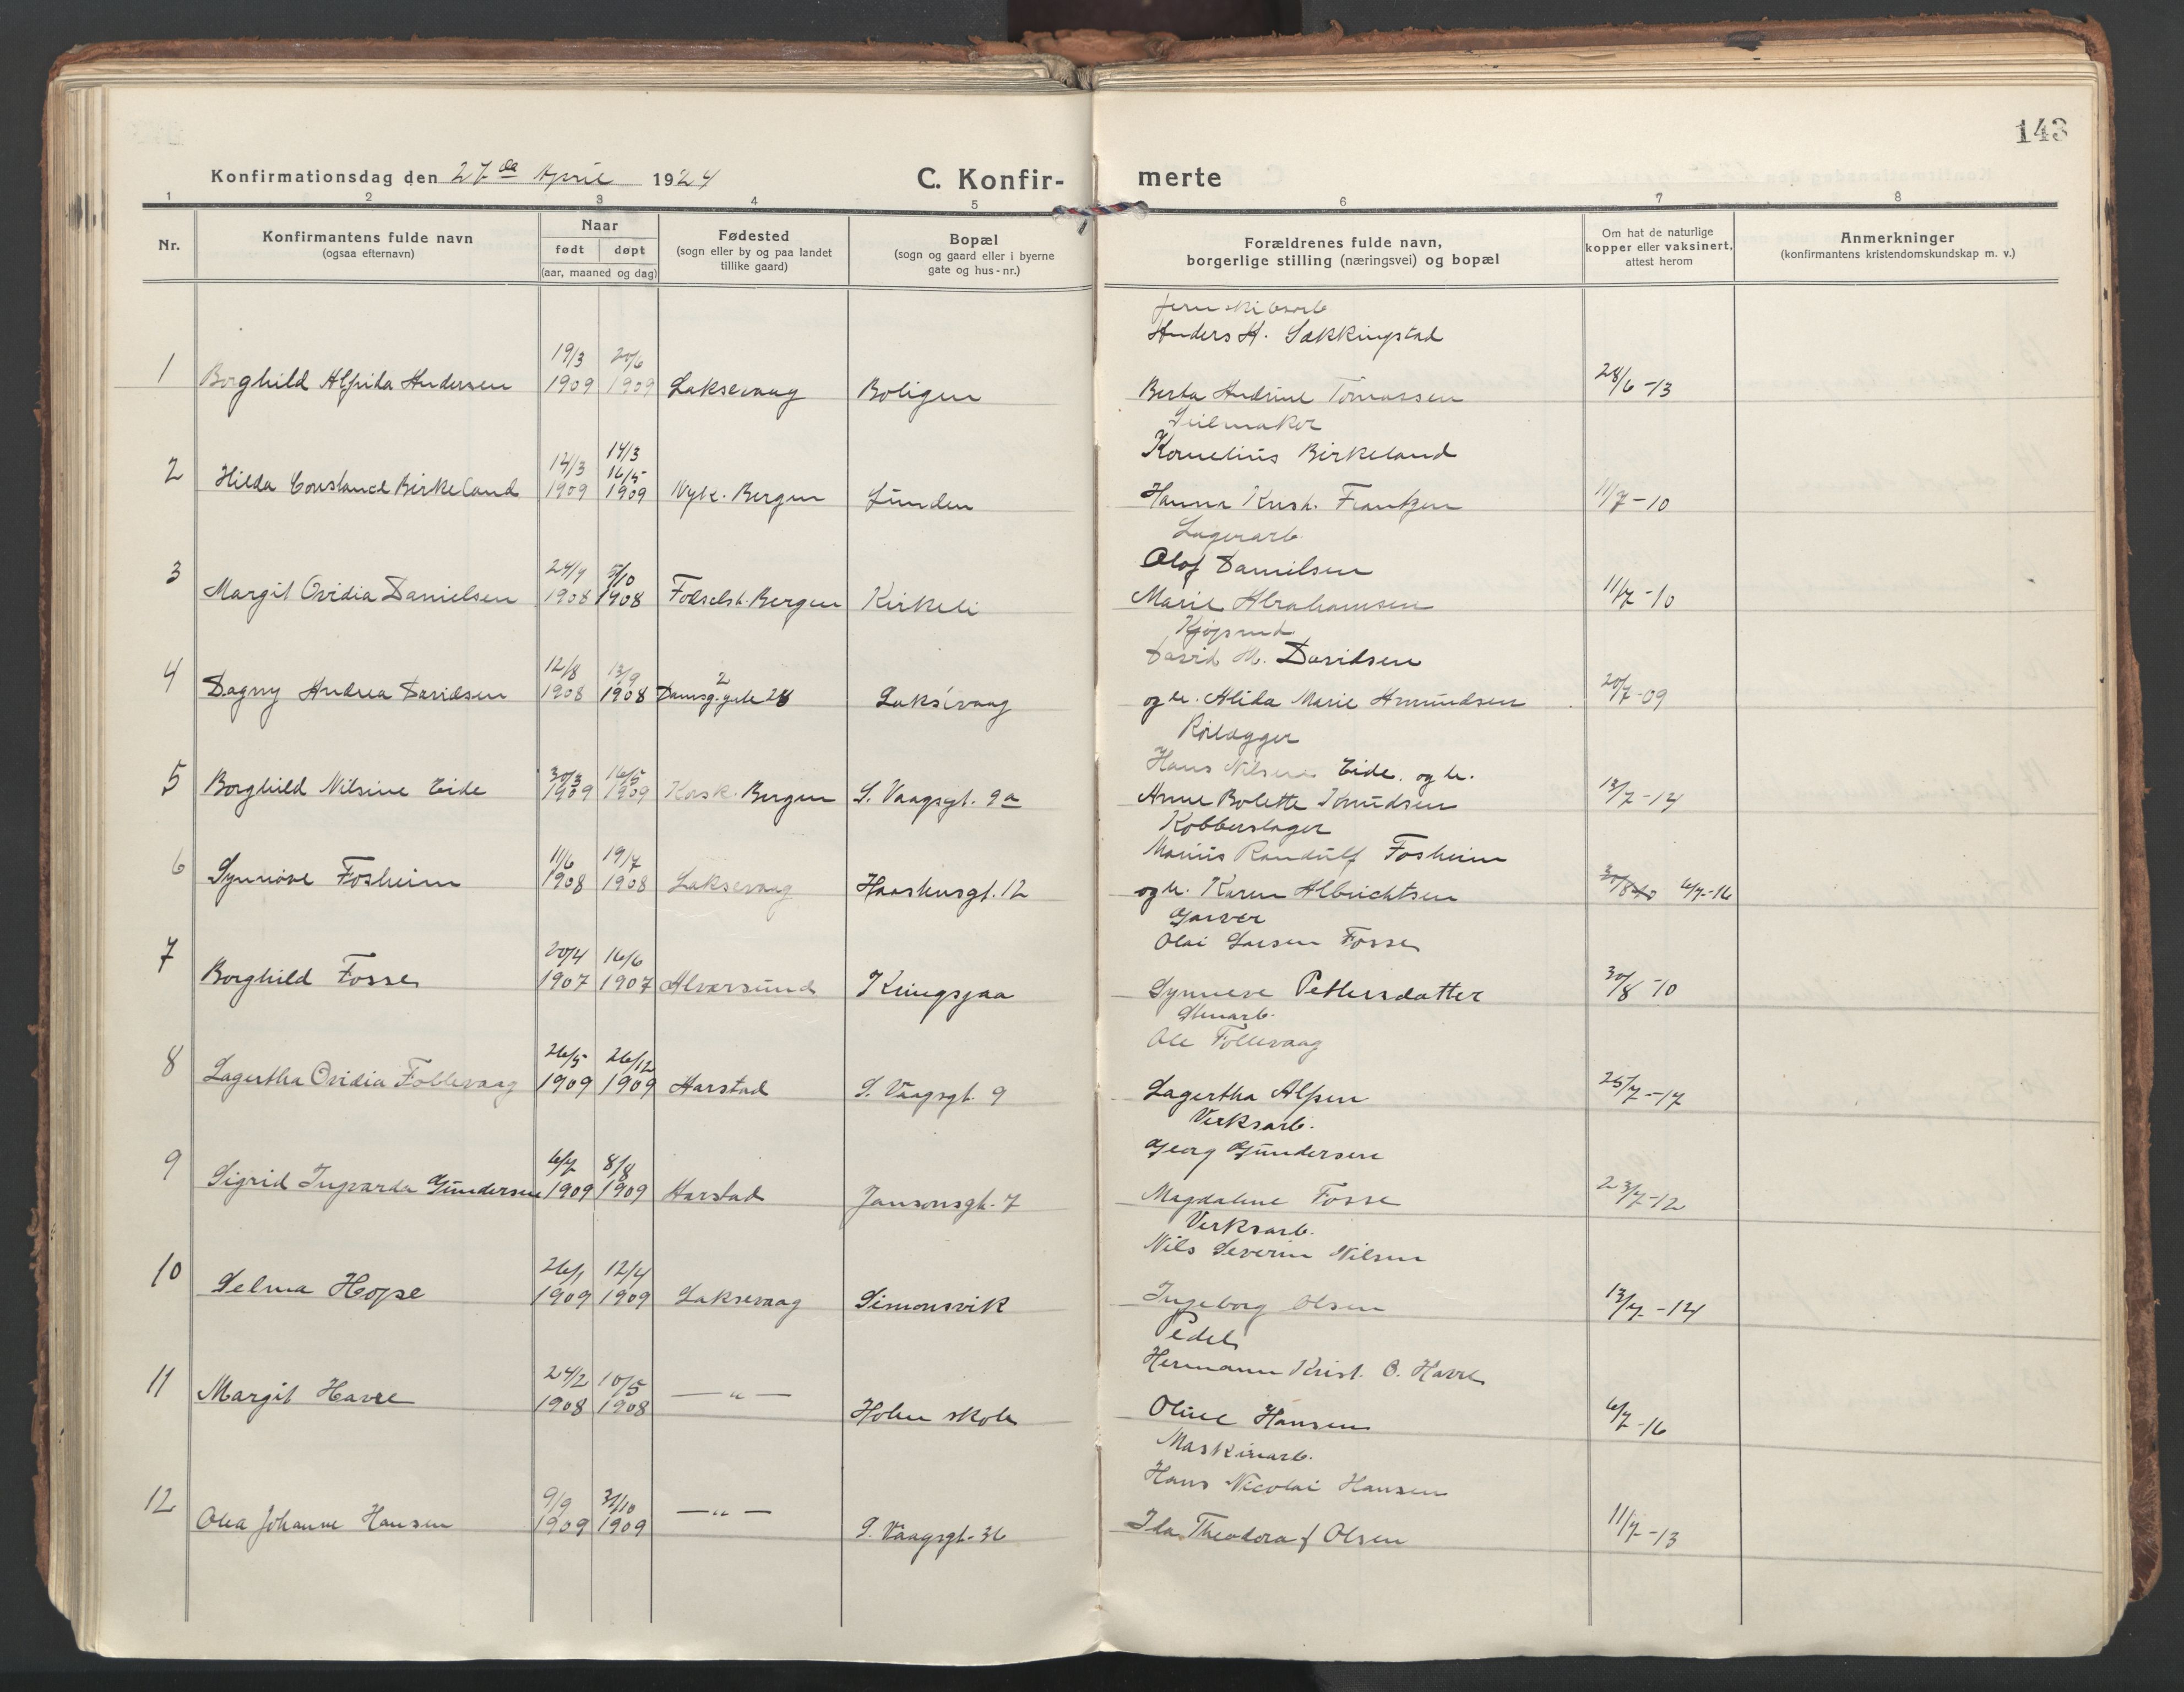 143
Konfirmationsdag den 27de April 1924 C. Konfir- merte
1 2 3 4 5 6 7 8
Nr. Konfirmantens fulde navn (ogsaa efternavn) Naar født døpt (aar, maaned og dag) Fødested (sogn eller by og paa landet tillike gaard) Bopæl (sogn og gaard eller i byerne gate og hus-nr.) Forældrenes fulde navn, borgerlige stilling (næringsvei) og bopæl Om hat de naturlige kopper eller vaksinert, attest herom Anmerkninger (konfirmantens kristendomskundskap m. v.)
Jernskibsarb
Anders H. Sækkingstad
1 Borghild Alfrida Andersen 19/3 1909 20/6 1909 Laksevaag Boligen Berta Andrine Tomassen 28/6-13
Seilmaker
Kornelius Birkeland
2 Hilda Constance Birkeland 12/3 1909 14/3 16/5 1909 Nyk. Bergen Lunden Hanna Krist. Frantzen 11/7-10
Lagerarb.
Olof Danielsen
3 Margit Ovidia Danielsen 24/9 1908 5/10 1908 Fødselsst. Bergen Kirkeli Marie Abrahamsen 11/7-10
Kjøpmd.
David M. Davidsen
4 Dagny Andrea Davidsen 12/8 1908 13/9 1908 Damsg.gate 28 2 Laksevaag og h. Alida Marie Amundsen 20/7-09
Rørlægger
Hans Nilsen Eide. og h.
5 Borghild Nilsine Eide 30/3 1909 16/5 1909 Kosk. Bergen S. Vaagsgt. 9a Anne Bolette Knudsen 13/7-14
Kobberslager
Marius Randulf Fosheim
6 Synnøve Fosheim 11/6 1908 19/7 1908 Laksevaag Haashusgt. 12 og h. Karen Albrichtsen 30/8-10 6/7-16
Garver
Olai Larsen Fosse
7 Borghild Fosse 20/4 1907 16/6 1907 Alversund Kringsjaa Synneve Pettersdatter 30/8-10
Stenarb.
Ole Follevaag
8 Lagertha Ovidia Follevaag 26/5 1909 26/12 1909 Harstad S. Vaagsgt. 9 Lagertha Alfsen 25/7-17
Verksarb.
Georg Gundersen
9 Sigrid Ingvarda Gundersen 6/7 1909 8/8 1909 Harstad Jansonsgt. 7 Magdalene Fosse 23/7-12
Verksarb.
Nils Severin Nilsen
10 Selma Hope 26/1 1909 12/4 1909 Laksevaag Simonsvik Ingeborg Olsen 13/7-14
Pedel
Hermann Krist. O. Havre
11 Margit Havre 24/2 1908 10/5 1908 — " — Holen skole Oline Hansen 6/7-16
Maskinarb.
Hans Nicolai Hansen
12 Olea Johanne Hansen 9/9 1909 31/10 1909 — " — S. Vaagsgt. 36 Ida Theodora f Olsen 11/7-13